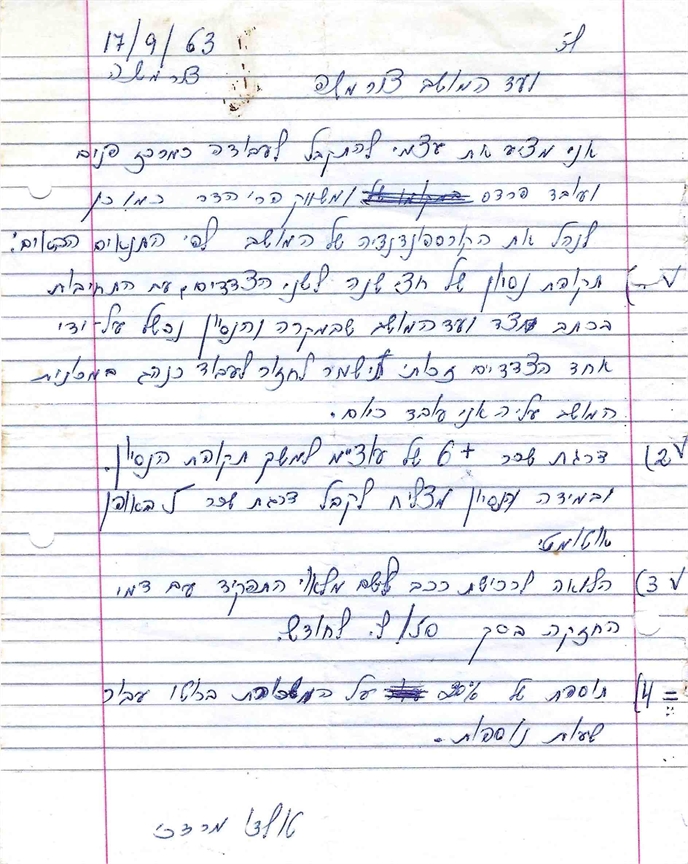 17/9/63 לכ'
צור משה
ועד המושב צור משה
אני מציע את עצמי להתקבל לעבודה כמרכז פנים
ועובד פרדס ומשווק פרי הדר כמו כן
לנהל את הקורספונדנציה של המושב לפי התנאים הבאים:
1) תקופת נסיון של חצי שנה לשני הצדדים, עם התחיבות
בכתב מצד ועד המושב שבמקרה והנסיון נכשל על-ידי
אחד הצדדים זכותי תישמר לחזור לעבוד כנהג במכונית
המושב עליה אני עובד כיום.
2) דרגת שכר 6+ של למשך תקופת הנסיון.
ובמידה והנסיון מצליח לקבל דרגת שכר 7 באופן
אוטומטי
3) הלואה לרכישת רכב לשם מלאוי התפקיד עם דמי
החזקה בסך 150 ל"י לחודש.
4) תוספת של 20% על המשכורת ברוטו עבור
שעות נוספות.
מרדכי